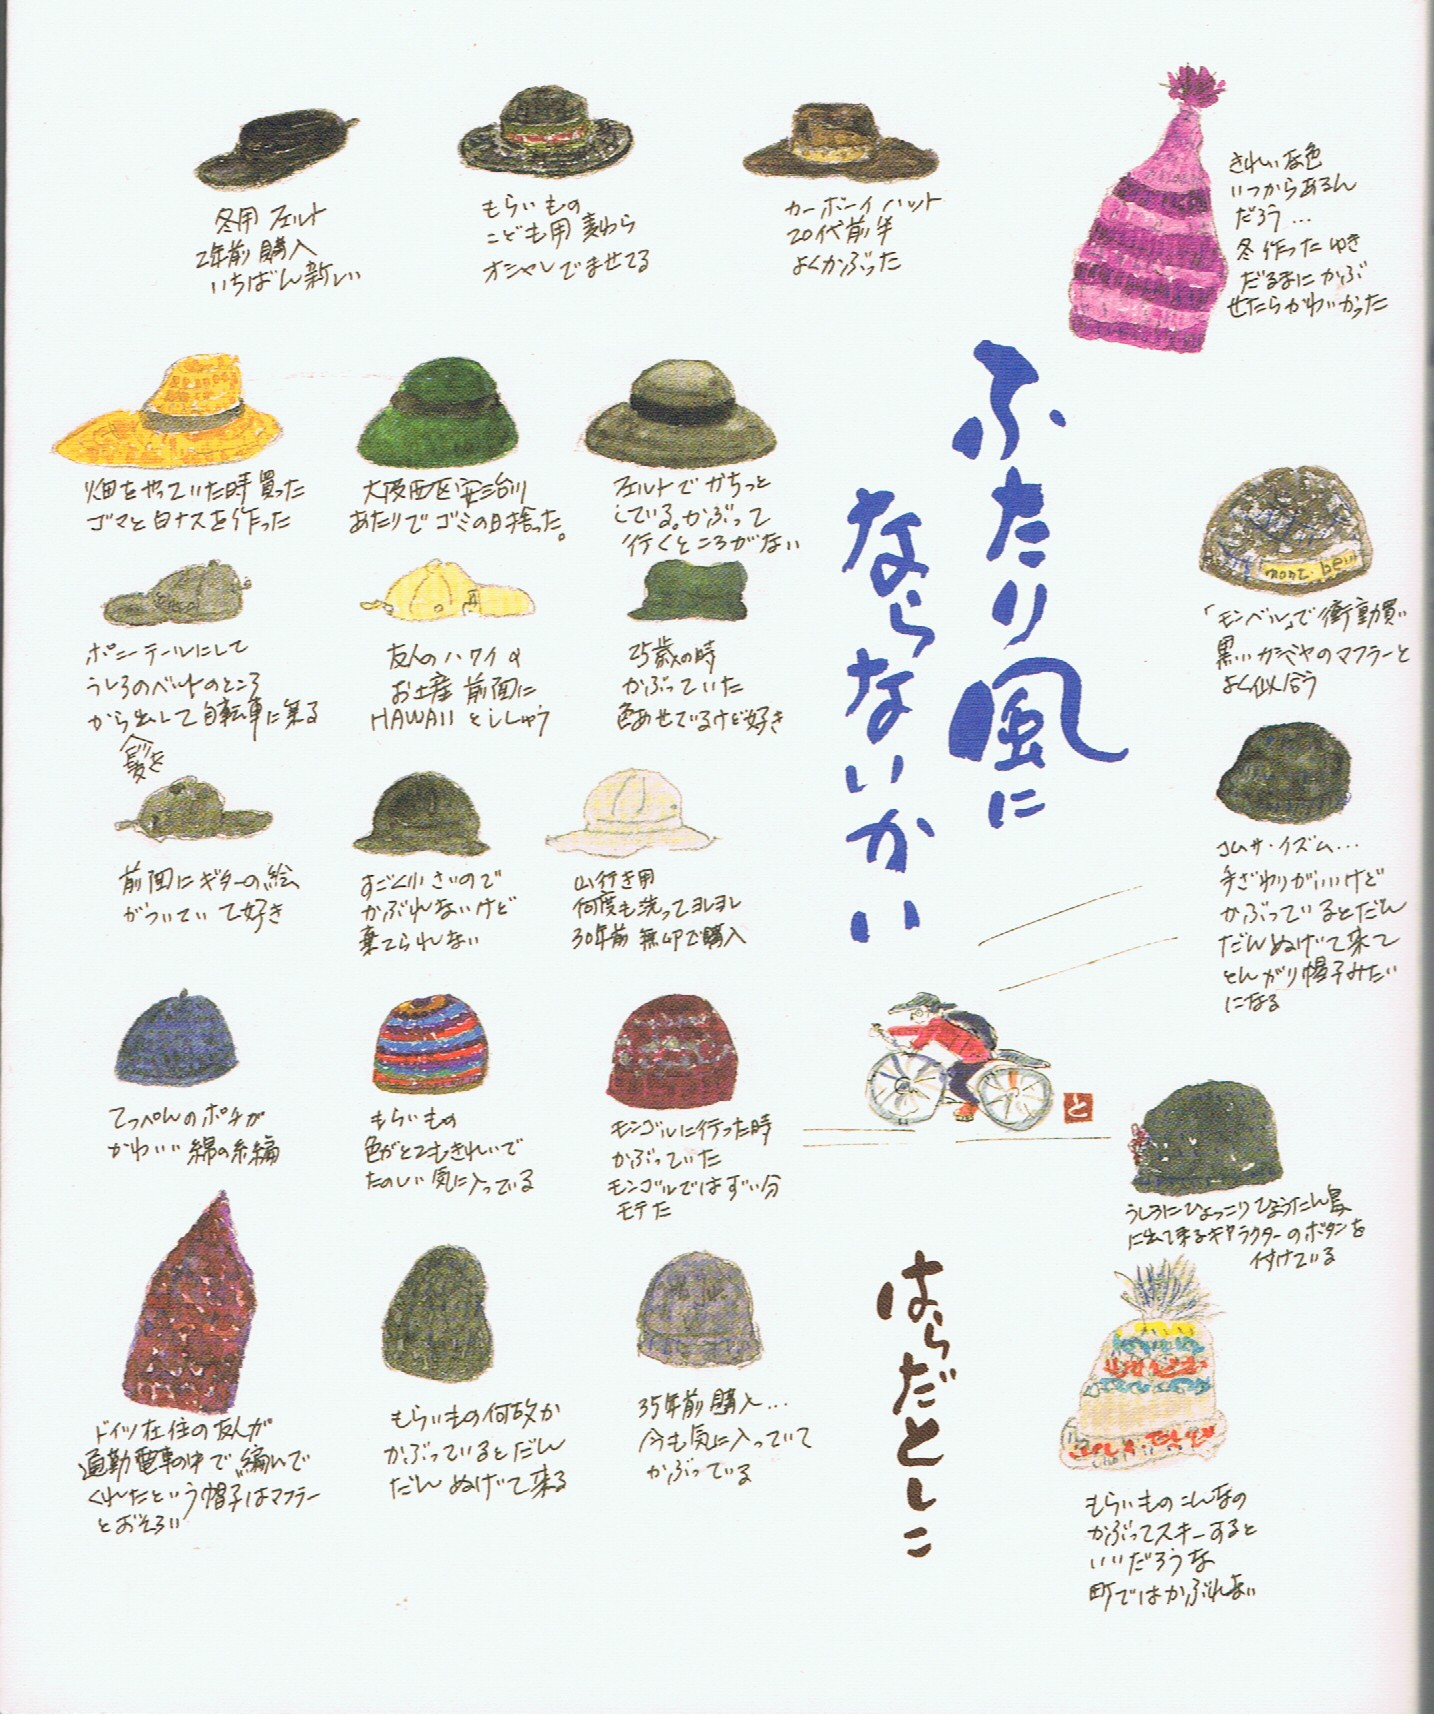 冬用 フェルト
2年前 購入
いちばん新しい
もらいもの
こども用 麦わら
オシャレでませてる
カーボーイハット
20代前半
よくかぶった
きれいな色
いつからあるん
だろう…
冬作ったゆき
だるまにかぶ
せたらかわいかった
ふたり風に
ならないかい
畑をやっていた時買った
ゴマと白ナスを作った
大阪西区安治川
あたりでゴミの日捨った。
フェルトでかちっと
している。かぶって
行くところがない
mont・bell
「モンベル」で衝動買い
黒いカシミヤのマフラーと
よく似合う
ポニーテールにして
うしろのベルトのところ
から出して自転車に乗る
髪を
友人のハワイの
お土産 前面に
HAWAIIとししゅう
25歳の時
かぶっていた
色あせているけど好き
コムサ・イズム…
手ざわりがいいけど
かぶっているとだん
だんぬげて来て
とんがり帽子みたい
になる
前面にギターの絵
がついていて好き
すごく小さいので
かぶれないけど
棄てられない
山行き用
何度も洗ってヨレヨレ
30年前 無印で購入
てっぺんのポチが
かわいい 綿の糸編
もらいもの
色がとてもきれいで
たのしい 気に入っている
モンゴルに行った時
かぶっていた
モンゴルではずい分
モテた
と
うしろにひょっこりひょうたん島
に出て来るキャラクターのボタンを
付けている
ドイツ在住の友人が
通勤電車の中で編んで
くれたという帽子はマフラー
とおそろい
もらいもの何故か
かぶっているとだん
だんぬげて来る
35年前 購入…
今も気に入っていて
かぶっている
はらだとしこ
もらいもの こんなの
かぶってスキーすると
いいだろうな
町ではかぶれない